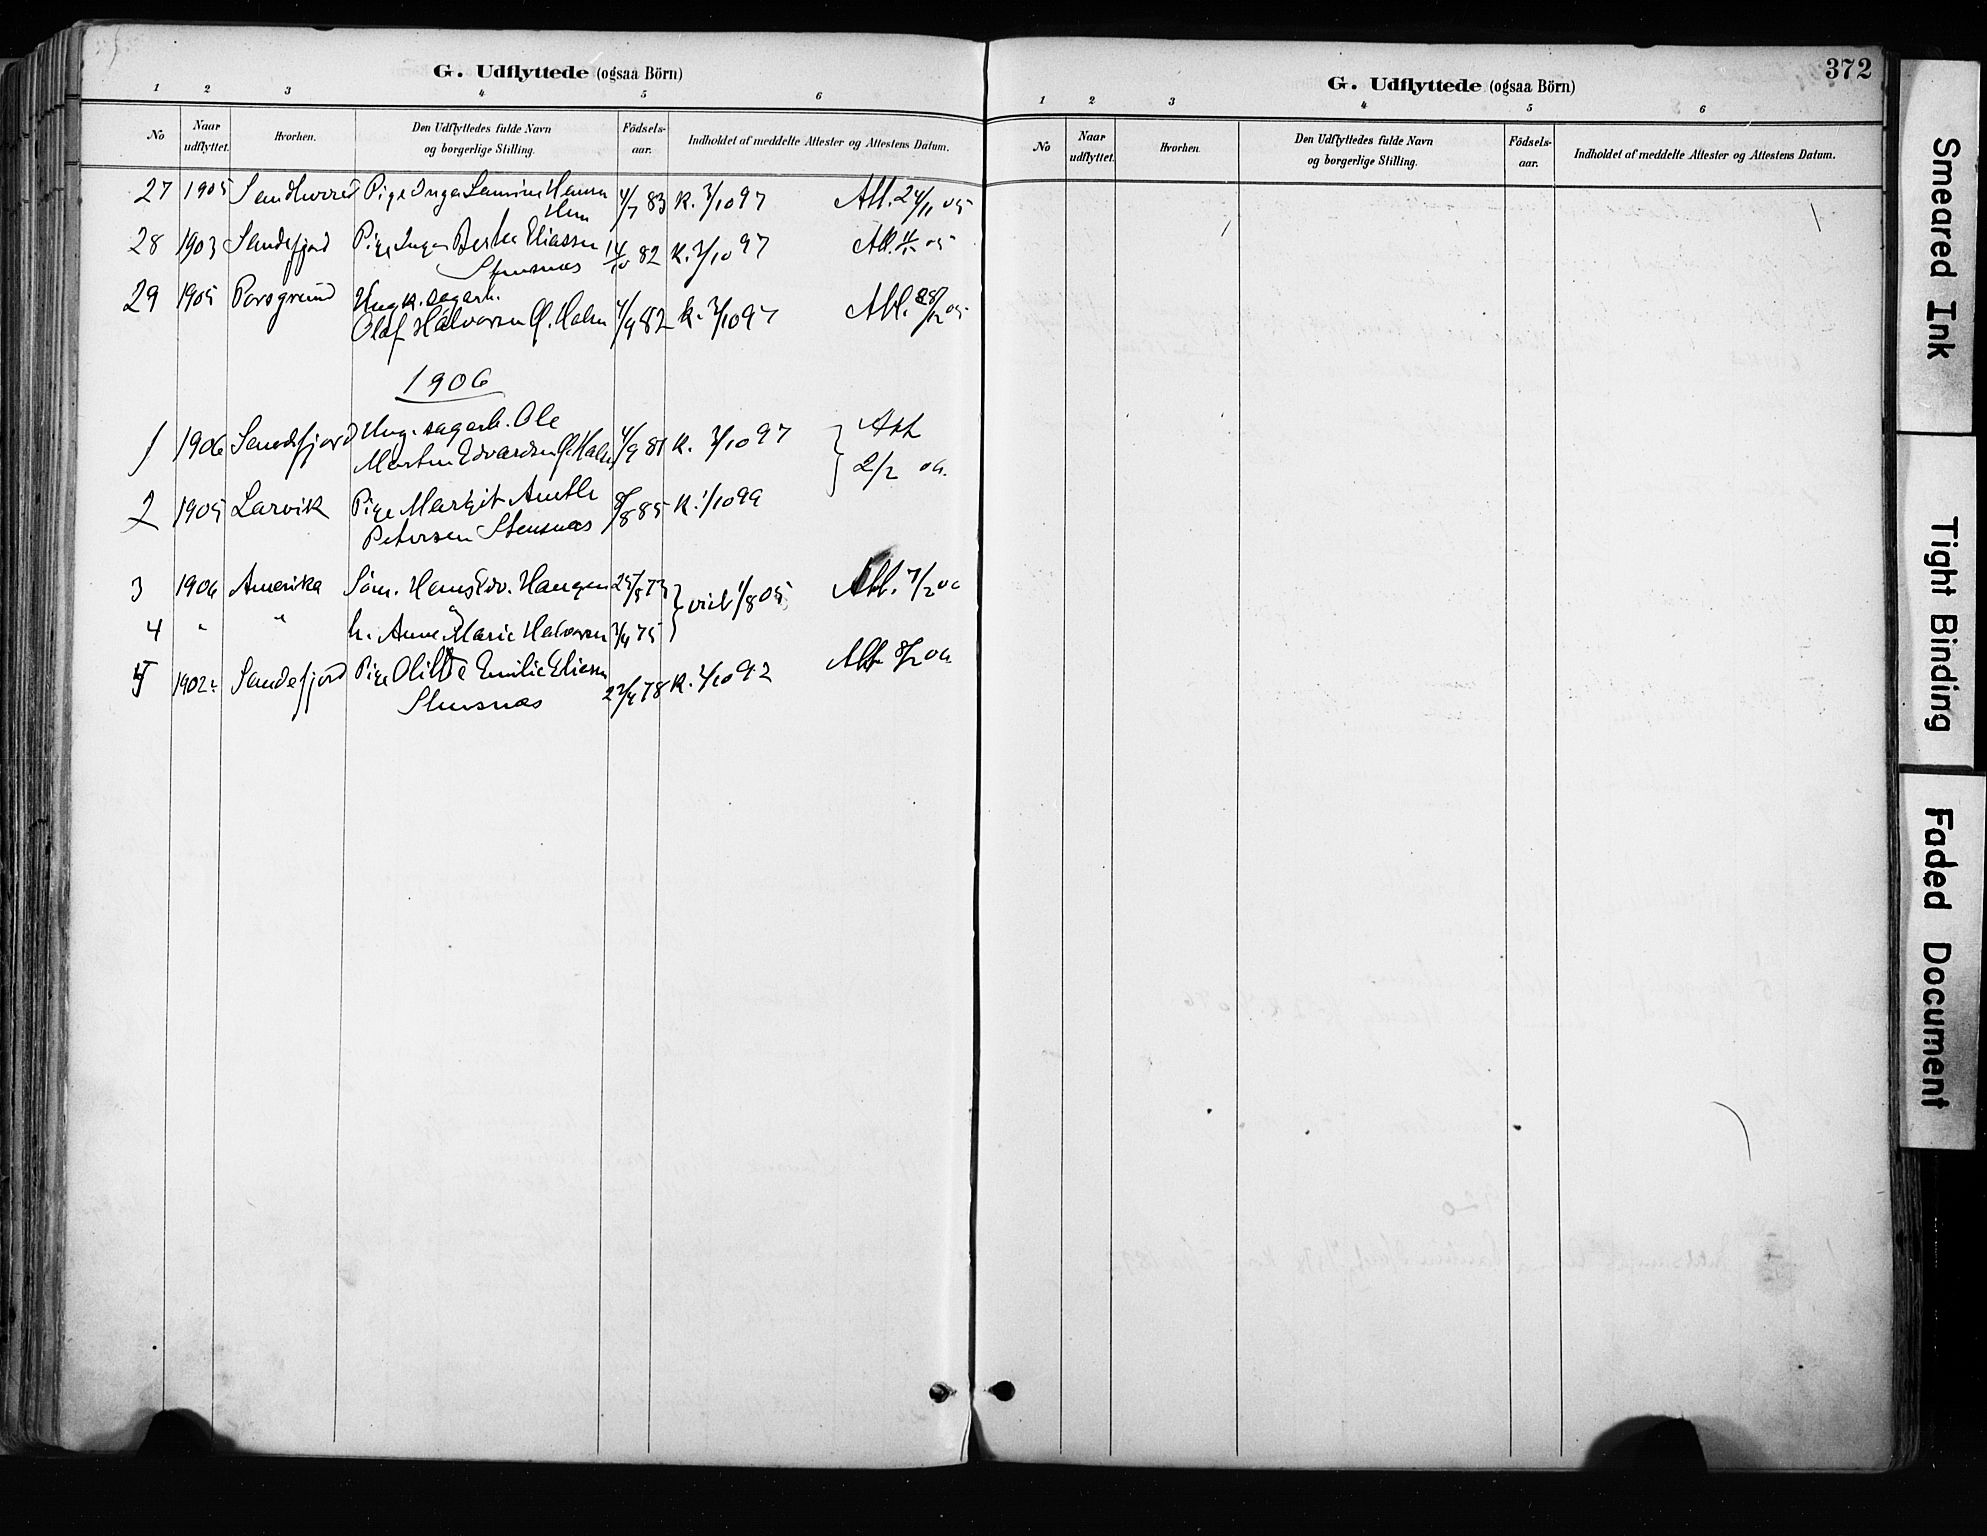 G. Udflyttede (ogsaa Börn)
1 2 3 4 5 6
No Naar udflyttet. Hvorhen. Den Udflyttedes fulde Navn og borgerlige Stilling. Födsels-aar. Indholdet af meddelte Attester og Attestens Datum.
27 1905 Pige Inga Hanna 4/7 83 K. 3/10 97 Att. 24/11 05
28 1903 Sandefjord Pige Inga Eliassen 14/10 82 K. 3/10 97 Att.
Stensnæs
29 1905 Porsgrund Ungk. sagarb.
Olaf Halvorsen Holm 4/9 82 K. 3/10 97 Att. 28/12 05
1906
1 1906 Sandefjord Ung. sagarb. Ole
Martin Edvardsen Holm 4/9 81 K. 3/10 97 Att
2/2 06.
2 1905 Larvik Pige Margit
Petersen Stensnæs 8/8 85 K. 1/10 99
3 1906 Amerika Söm. Hans Edv. Haugen 25/5 73 viet 1/8 05 Att. 7/2 06
4 " " h. Anne Marie Halvorsen 3/4 75
5 1902 Sandefjord Pige Emilie Eliasen 22/4 78 K. 2/10 92 Att 8/2 06
Stensnæs
372
G. Udflyttede (ogsaa Börn)
1 2 3 4 5 6
No Naar udflyttet. Hvorhen. Den Udflyttedes fulde Navn og borgerlige Stilling. Födsels-aar. Indholdet af meddelte Attester og Attestens Datum.
Smeared Ink
Tight Binding
Faded Document